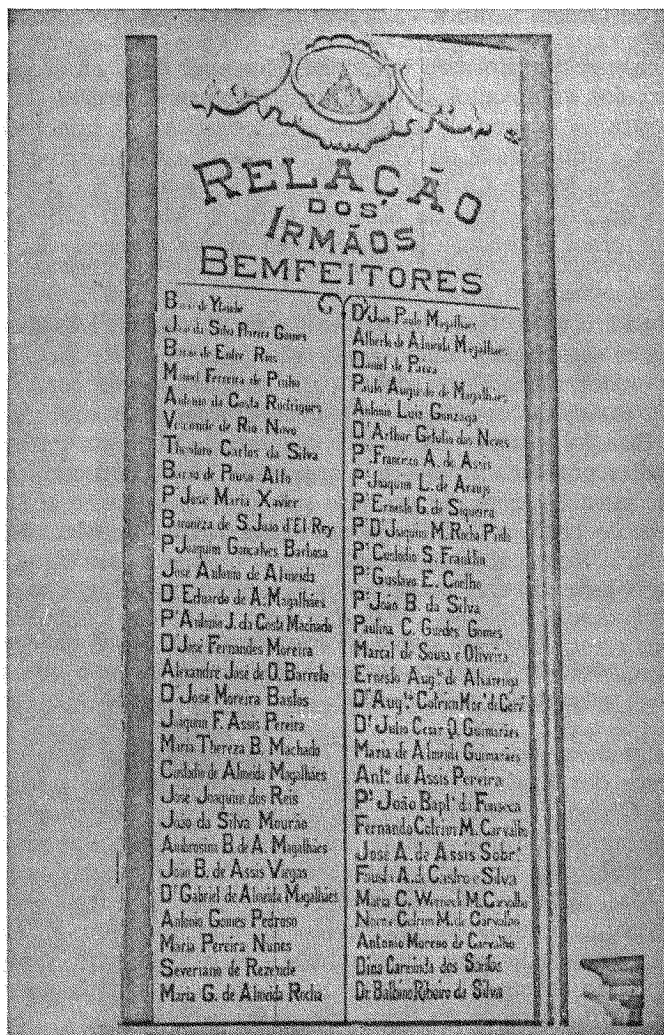 RELAÇÃO
DOS
IRMÃOS
BEMFEITORES
Barão de
João da Silva Pereira Gomes
Barão de Entre Rios
Manoel Ferreira de Pinho
Antonio da Costa Rodrigues
Visconde de Rio Novo
Theodoro Carlos da Silva
Barão de Pouso Alto
Pe José Maria Xavier
Baroneza de S. João d'El Rey
P Joaquim Gonçalves Barbosa
José Antonio de Almeida
D Eduardo de A. Magalhães
Pe Antonio J. da Costa Machado
D José Fernandes Moreira
Alexandre José de O. Barreto
Dr José Moreira Bastos
Joaquim F. Assis Pereira
Maria Thereza B. Machado
Custodio de Almeida Magalhães
José Joaquim dos Reis
João da Silva Mourão
Ambrosina B de A. Magalhães
João B. de Assis Viegas
Dr Gabriel de Almeida Magalhães
Antonio Gomes Pedroso
Maria Pereira Nunes
Severiano de Rezende
Maria G. de Almeida Rocha
Dr Paulo Magalhães
Alberto de Almeida Magalhães
Daniel de Paiva
Paulo Augusto de Magalhães
Antonio Luiz Gonzaga
Dr Arthur Getulio das Neves
Pe Francisco A. de Assis
Pe Joaquim L. de Araujo
Pe Ernesto G. de Siqueira
Pe Dr Joaquim M. Rocha Pinto
Pe Custodio S. Franklin
Pe Gustavo E. Coelho
Pe João B. da Silva
Paulina C. Guedes Gomes
Marçal de Sousa e Oliveira
Ernesto Augto de Alvarenga
Dr Augto Cotrim Morа de
Dr Julio Cesar Q. Guimarães
Maria de Almeida Guimarães
Anto de Assis Pereira
Pe João Bapta da Fonseca
Fernando Cotrim M. Carvalho
José A. de Assis Sobro
Fausto A. de Castro e Silva
Maria C. M. Carvalho
Cotrim M. de Carvalho
Antonio Moreno de Carvalho
Dina Carminda dos Santos
Dr. Balbino Ribeiro da Silva